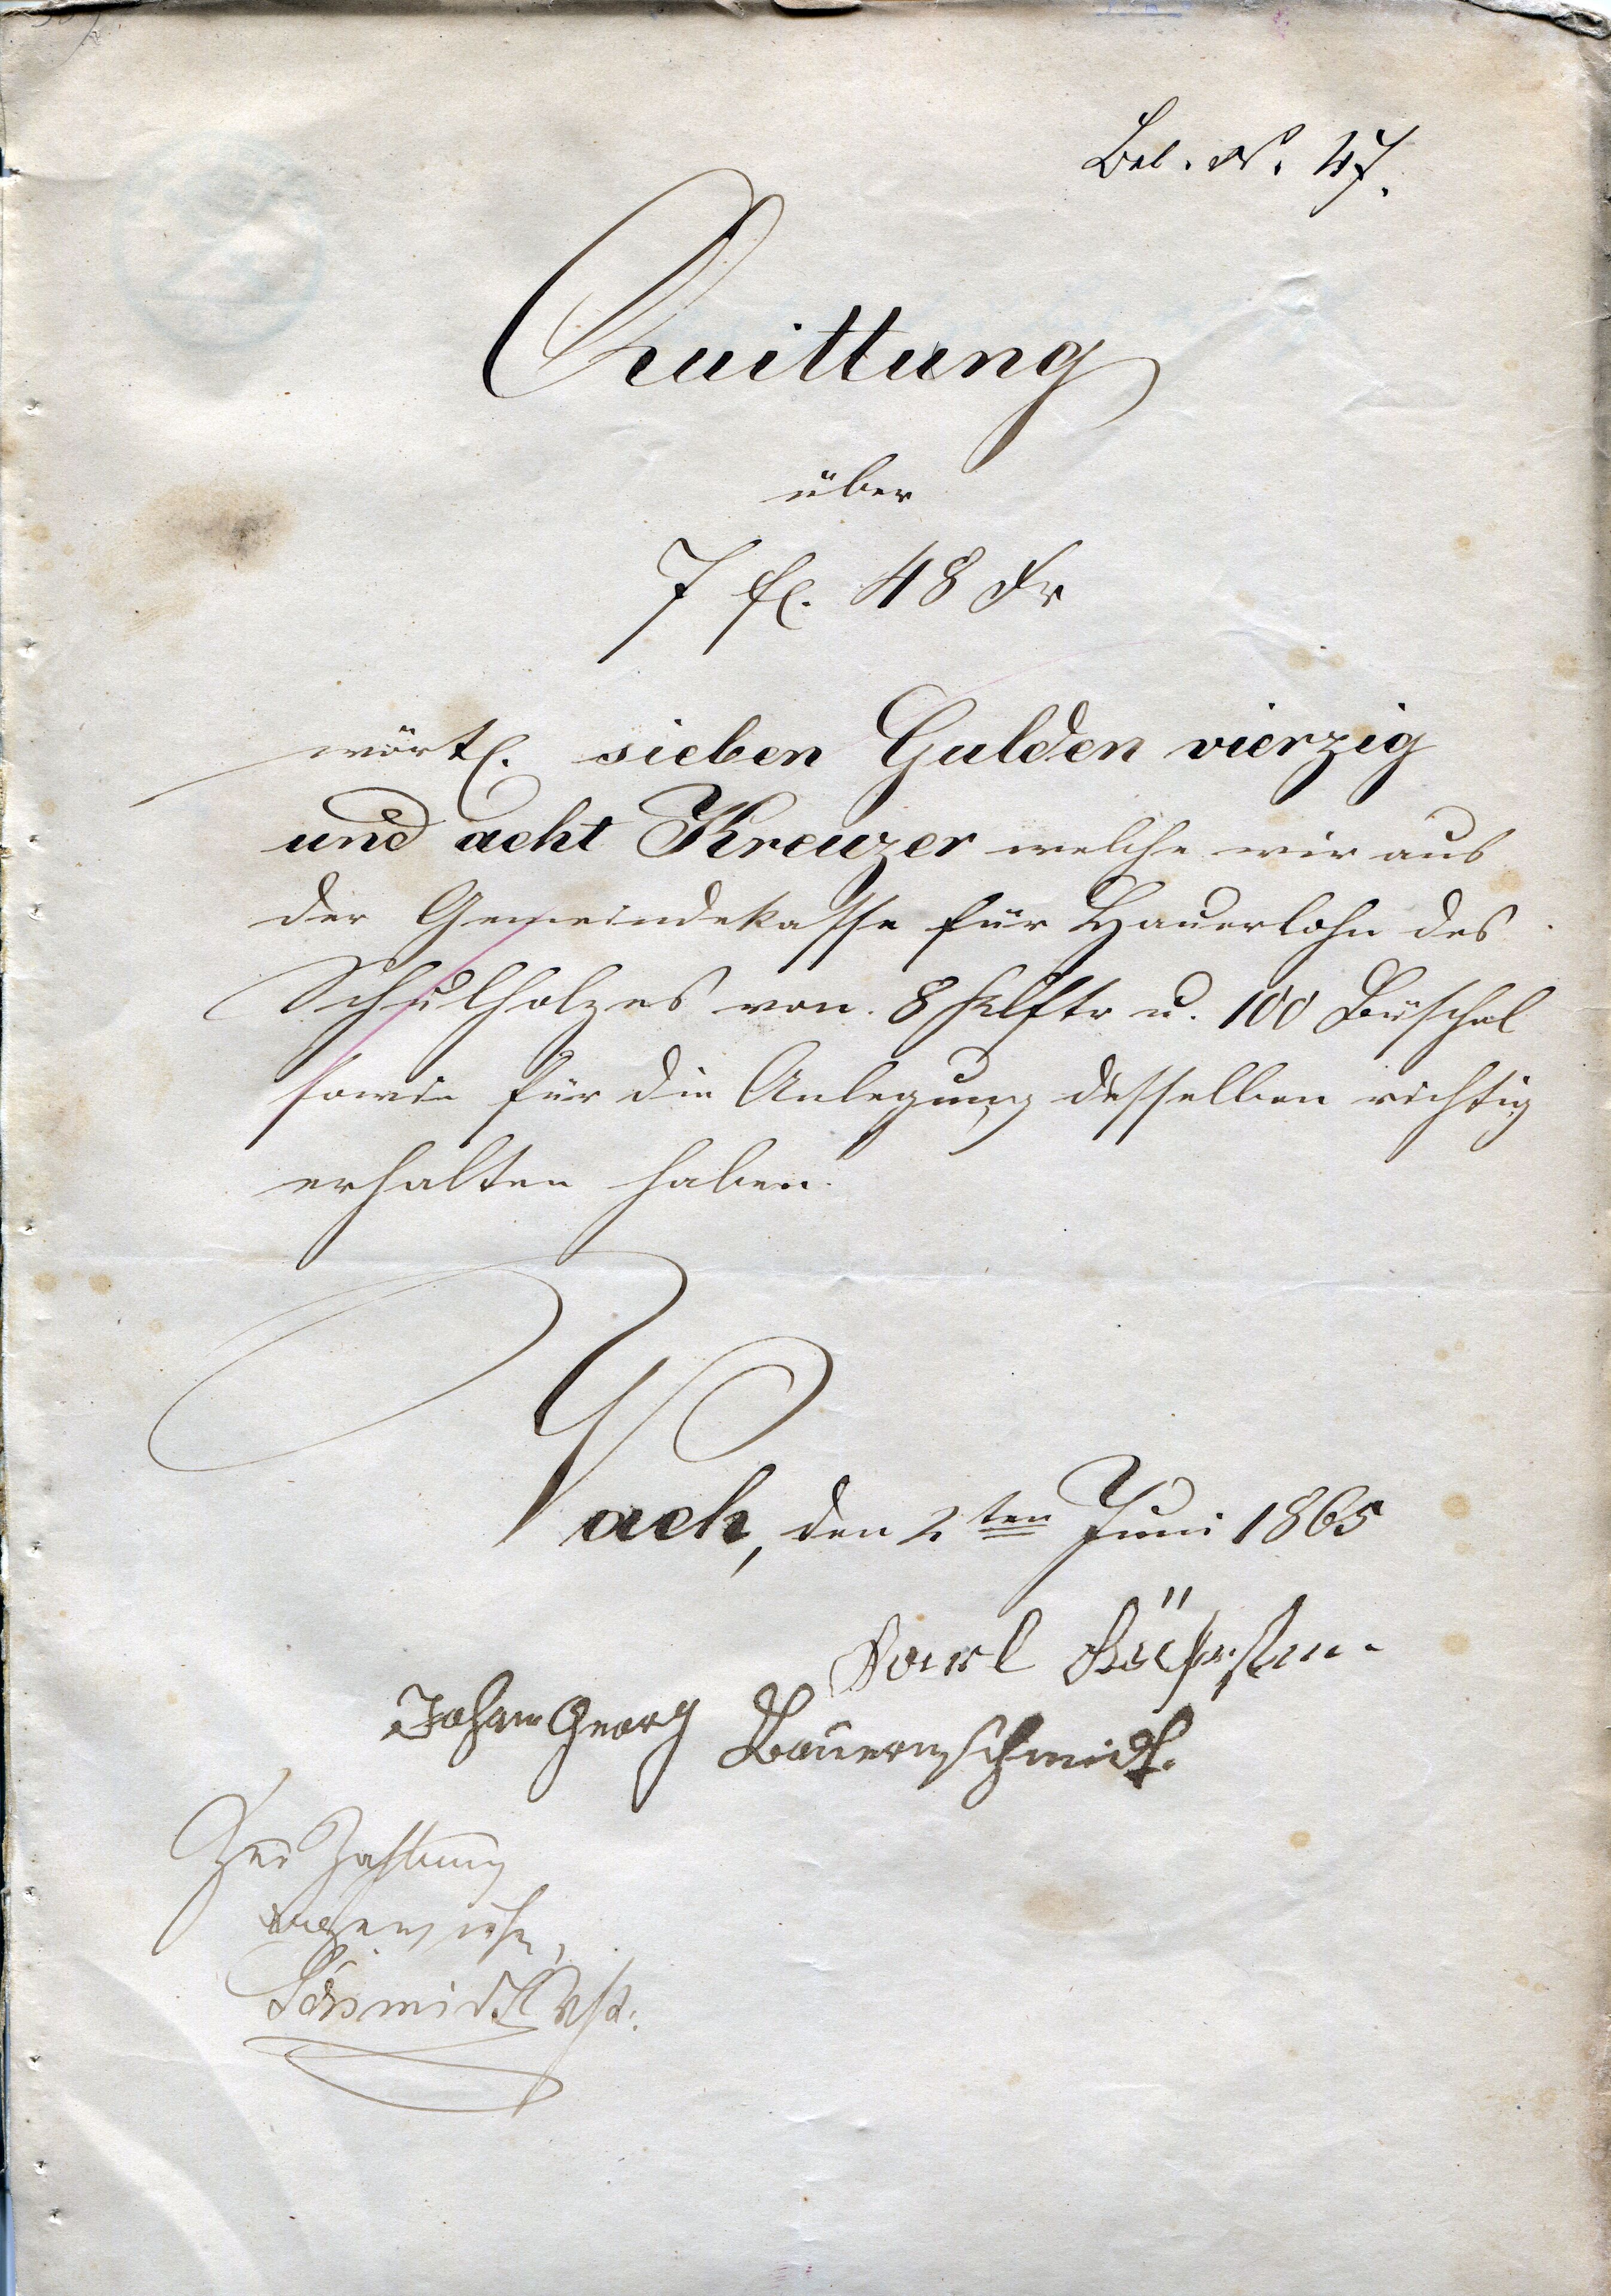 Bel. N. 47.
Quittung
über
7 fl. 48 Kr
wörtl. sieben Gulden vierzig
und acht Kreuzer welche wir aus
der Gemeindekasse für Hauerlohn des
Schulholzes von 8 Klftr u. 100 Büschel
sowie für die Anlegung desselben richtig
erhalten haben.
Vach, den 2ten Juni 1865
Johann Georg Bauernschmidt.
Zur Zahlung
angewiesen,
Schmidt Vst.